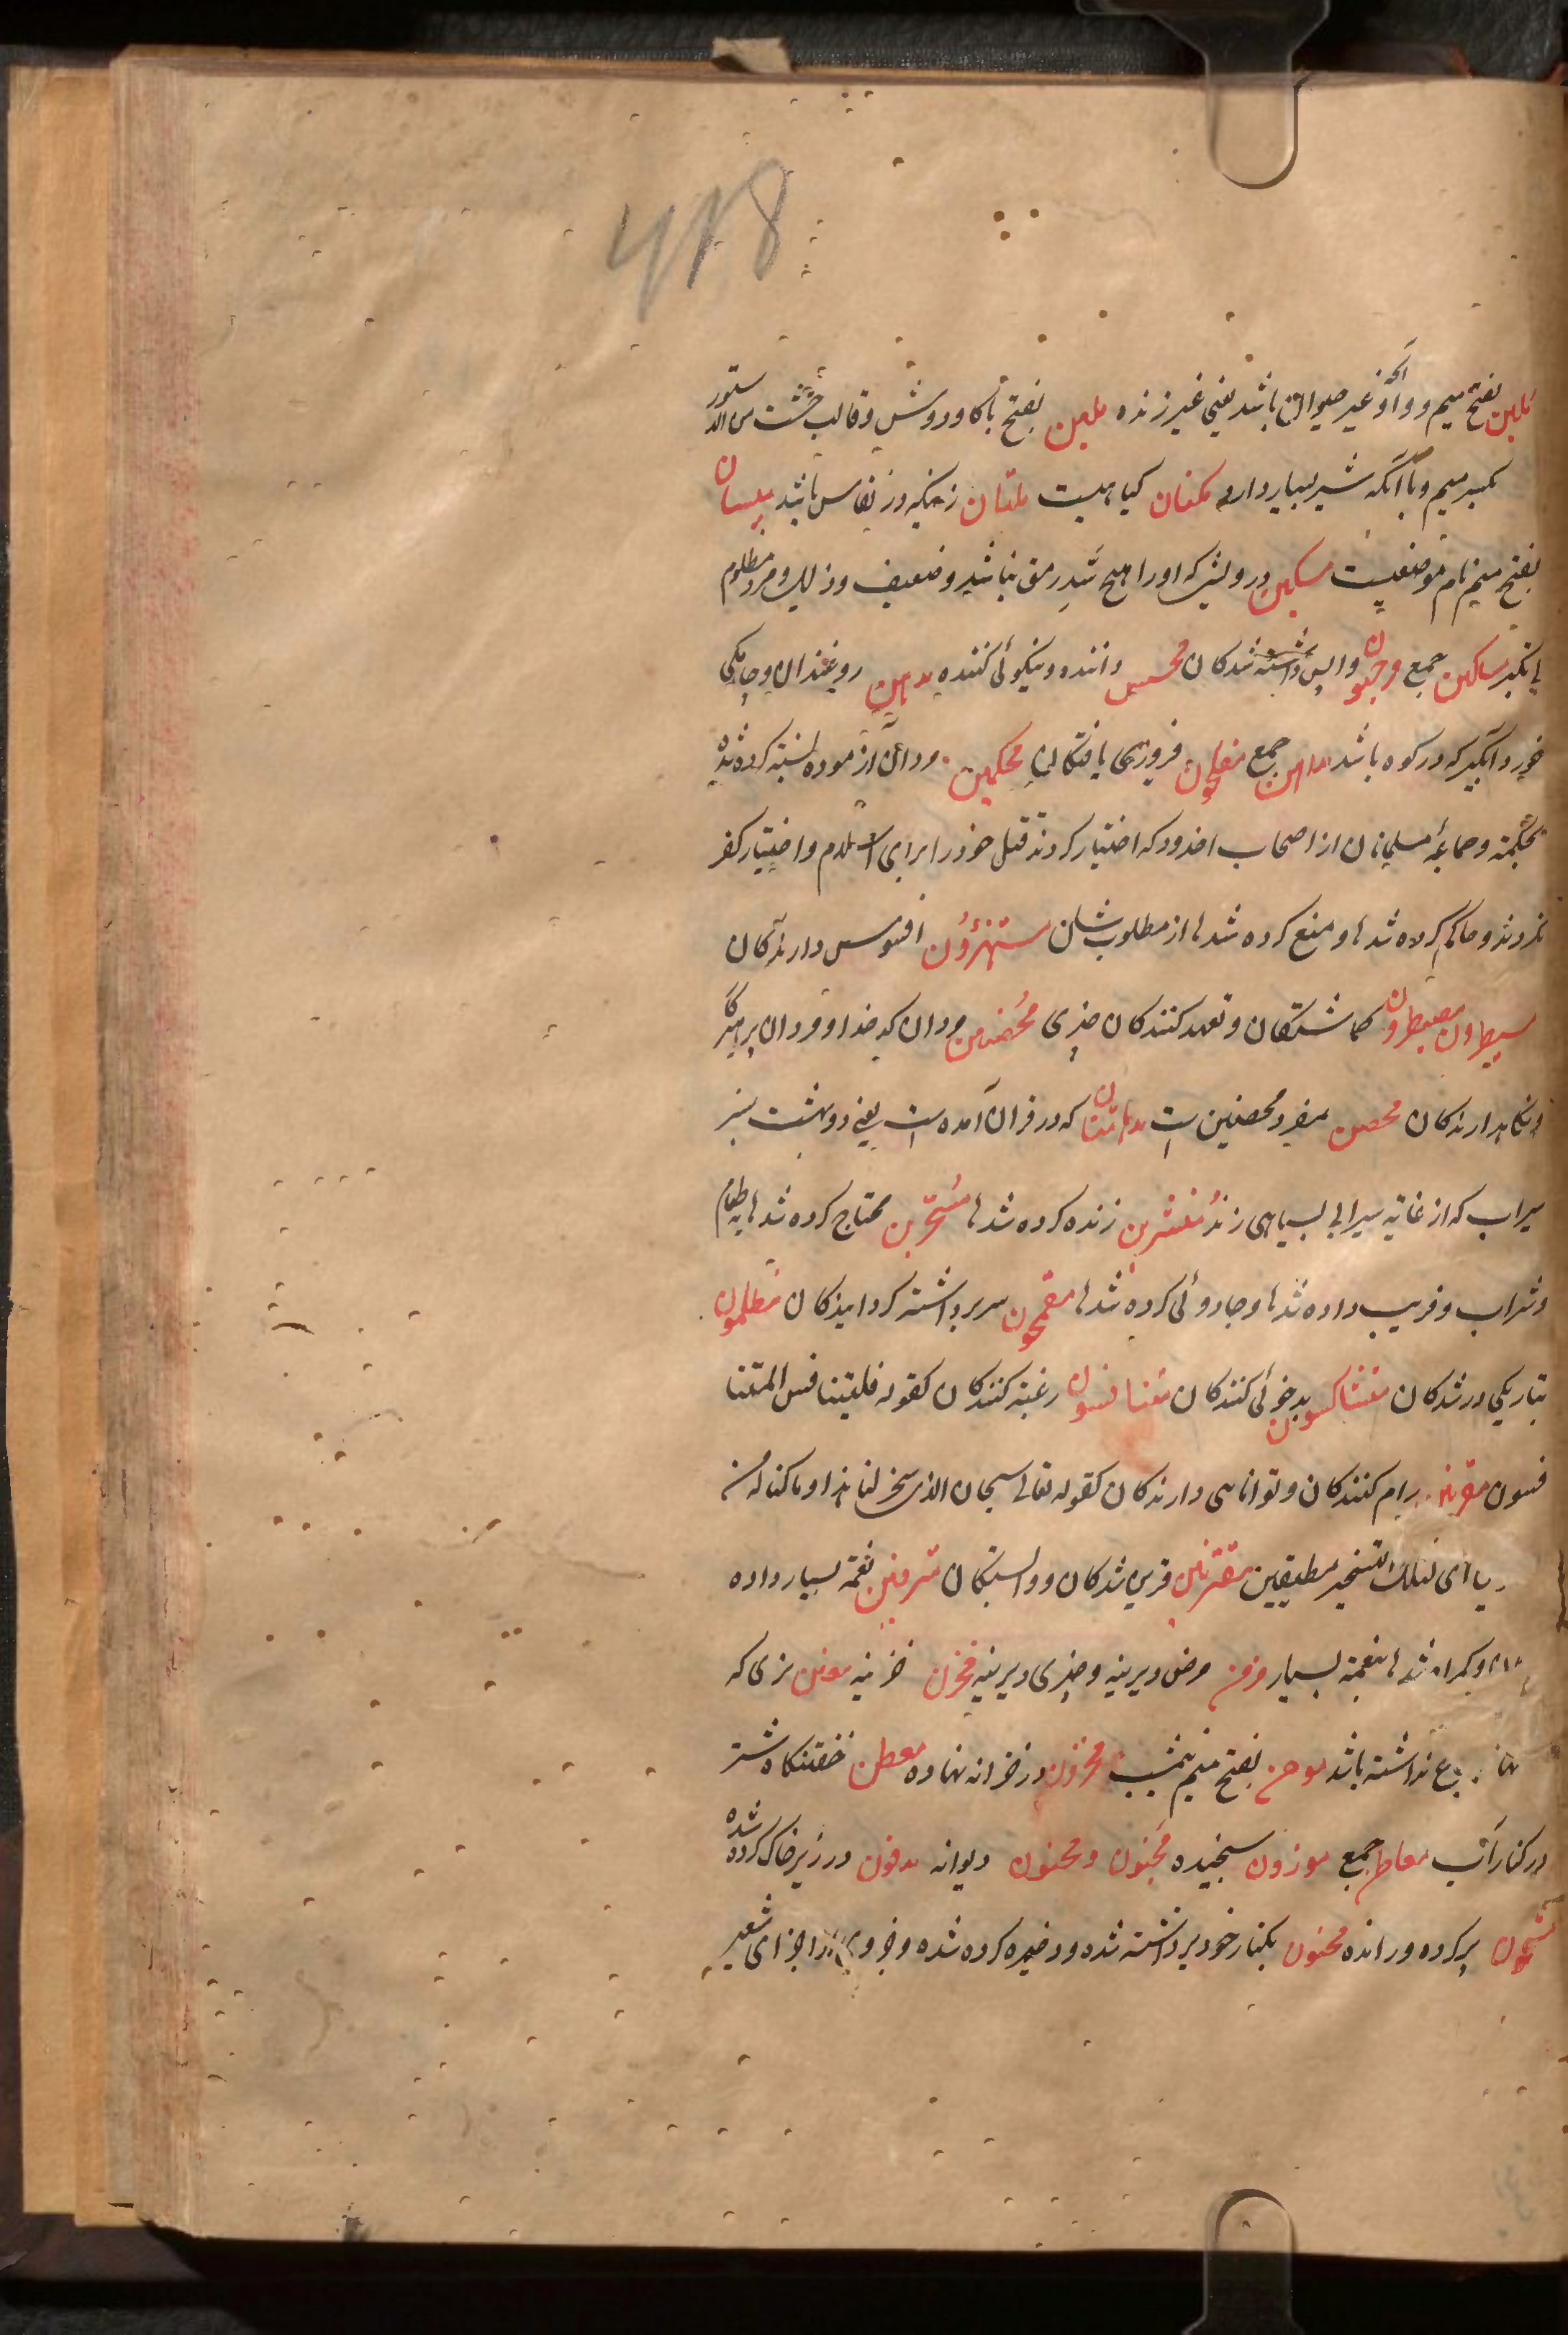 418
بفتح میم و واو غیر حیوان باشد یعنی غیر زنده ملبن بفتح با کاودوش و قالب خشت
بکسر میم و با آنکه شیر بسیار دارد مکنان کیاهیست ملتان زنیکه در نفاس باشد میسان
بفتح میم نام موضعیست مسکین درویش که او را هیچ سد رمق نباشد و ضعیف و ذلیل و مرد مظلوم
مساکین جمع واپس داشته شدکان محسن داننده و نیکوئی کننده مدهن روغندان و جایکی
خورد آبگیر که در کوه باشد مداهن جمع مفلحون فیروزی یافتکان محکمین مردان آزموده نسبته کرده شده
بحکمة و جماعة مسلمانان از اصحاب اخدود که اختیار کردند قتل خود را برای اسلام و اختیار کفر
نکردند و حاکم کرده شدها و منع کرده شدها از مطلوب شان مستهزؤن افسوس دارندکان
مسیطرون مصیطرون کماشتکان و تعهد کنندکان چیزی محصنین مردان کدخدا و مردان پرهیزکار
و نکاهدارندکان محصن مفرد محصنین است مدهامتان که در قران آمده است یعنی دو بهشت سبز
سیراب که از غایة سیرابی بسیاهی زند منشرین زنده کرده شدها مسحرین محتاج کرده شدها به طعام
و شراب و فریب داده شدها و جادوئی کرده شدها مقمحون سر برداشته کردانیدکان مظلمون
بتاریکی درشدکان متشاکسون بدخوئی کنندکان متنافسون رغبة کنندکان کقوله فلیتنافس المتنا
فسون مقرنین رام کنندکان و توانایی دارندکان کقوله تعالی سبحان الذی سخر لنا هذا و ما کنا له مـ
ـ ای لتلک التسخیر مطیقین مقترنین قرین شدکان و وابستکان مترفین نعمة بسیار داده
و کمراه شدها بنعمة بسیار مزمن مرض دیرینه و چیزی دیرینه مخزن خزینه معنن بزی که
نداشته باشد موهن بفتح میم نیمشب مخزون در خزانه نهاده معطن خفتنکاه شتر
در کنار آب معاطن جمع موزون سنجیده مجنون و محنون دیوانه مدفون در زیر خاک کرده شده
مشحون پر کرده و رانده مخبون بکنار خود برداشته شده و ذخیره کرده شده و جزوی از اجزای شعیر